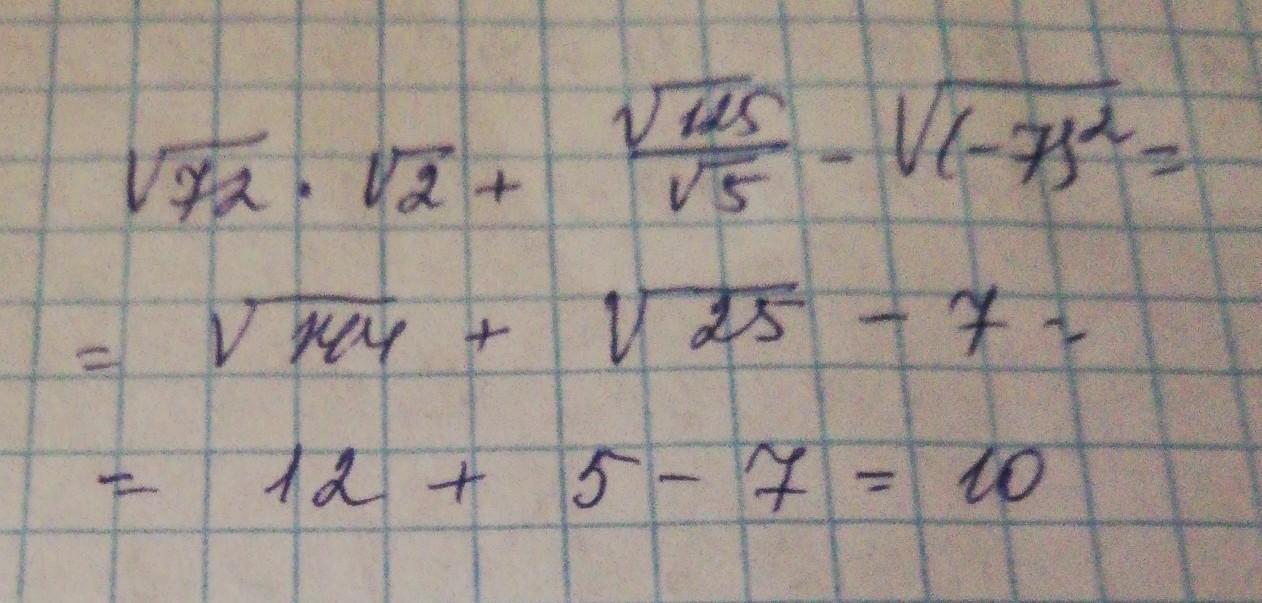 √72 · √2 + √125/√5 - √(-7)² =
= √144 + √25 - 7 =
= 12 + 5 - 7 = 10